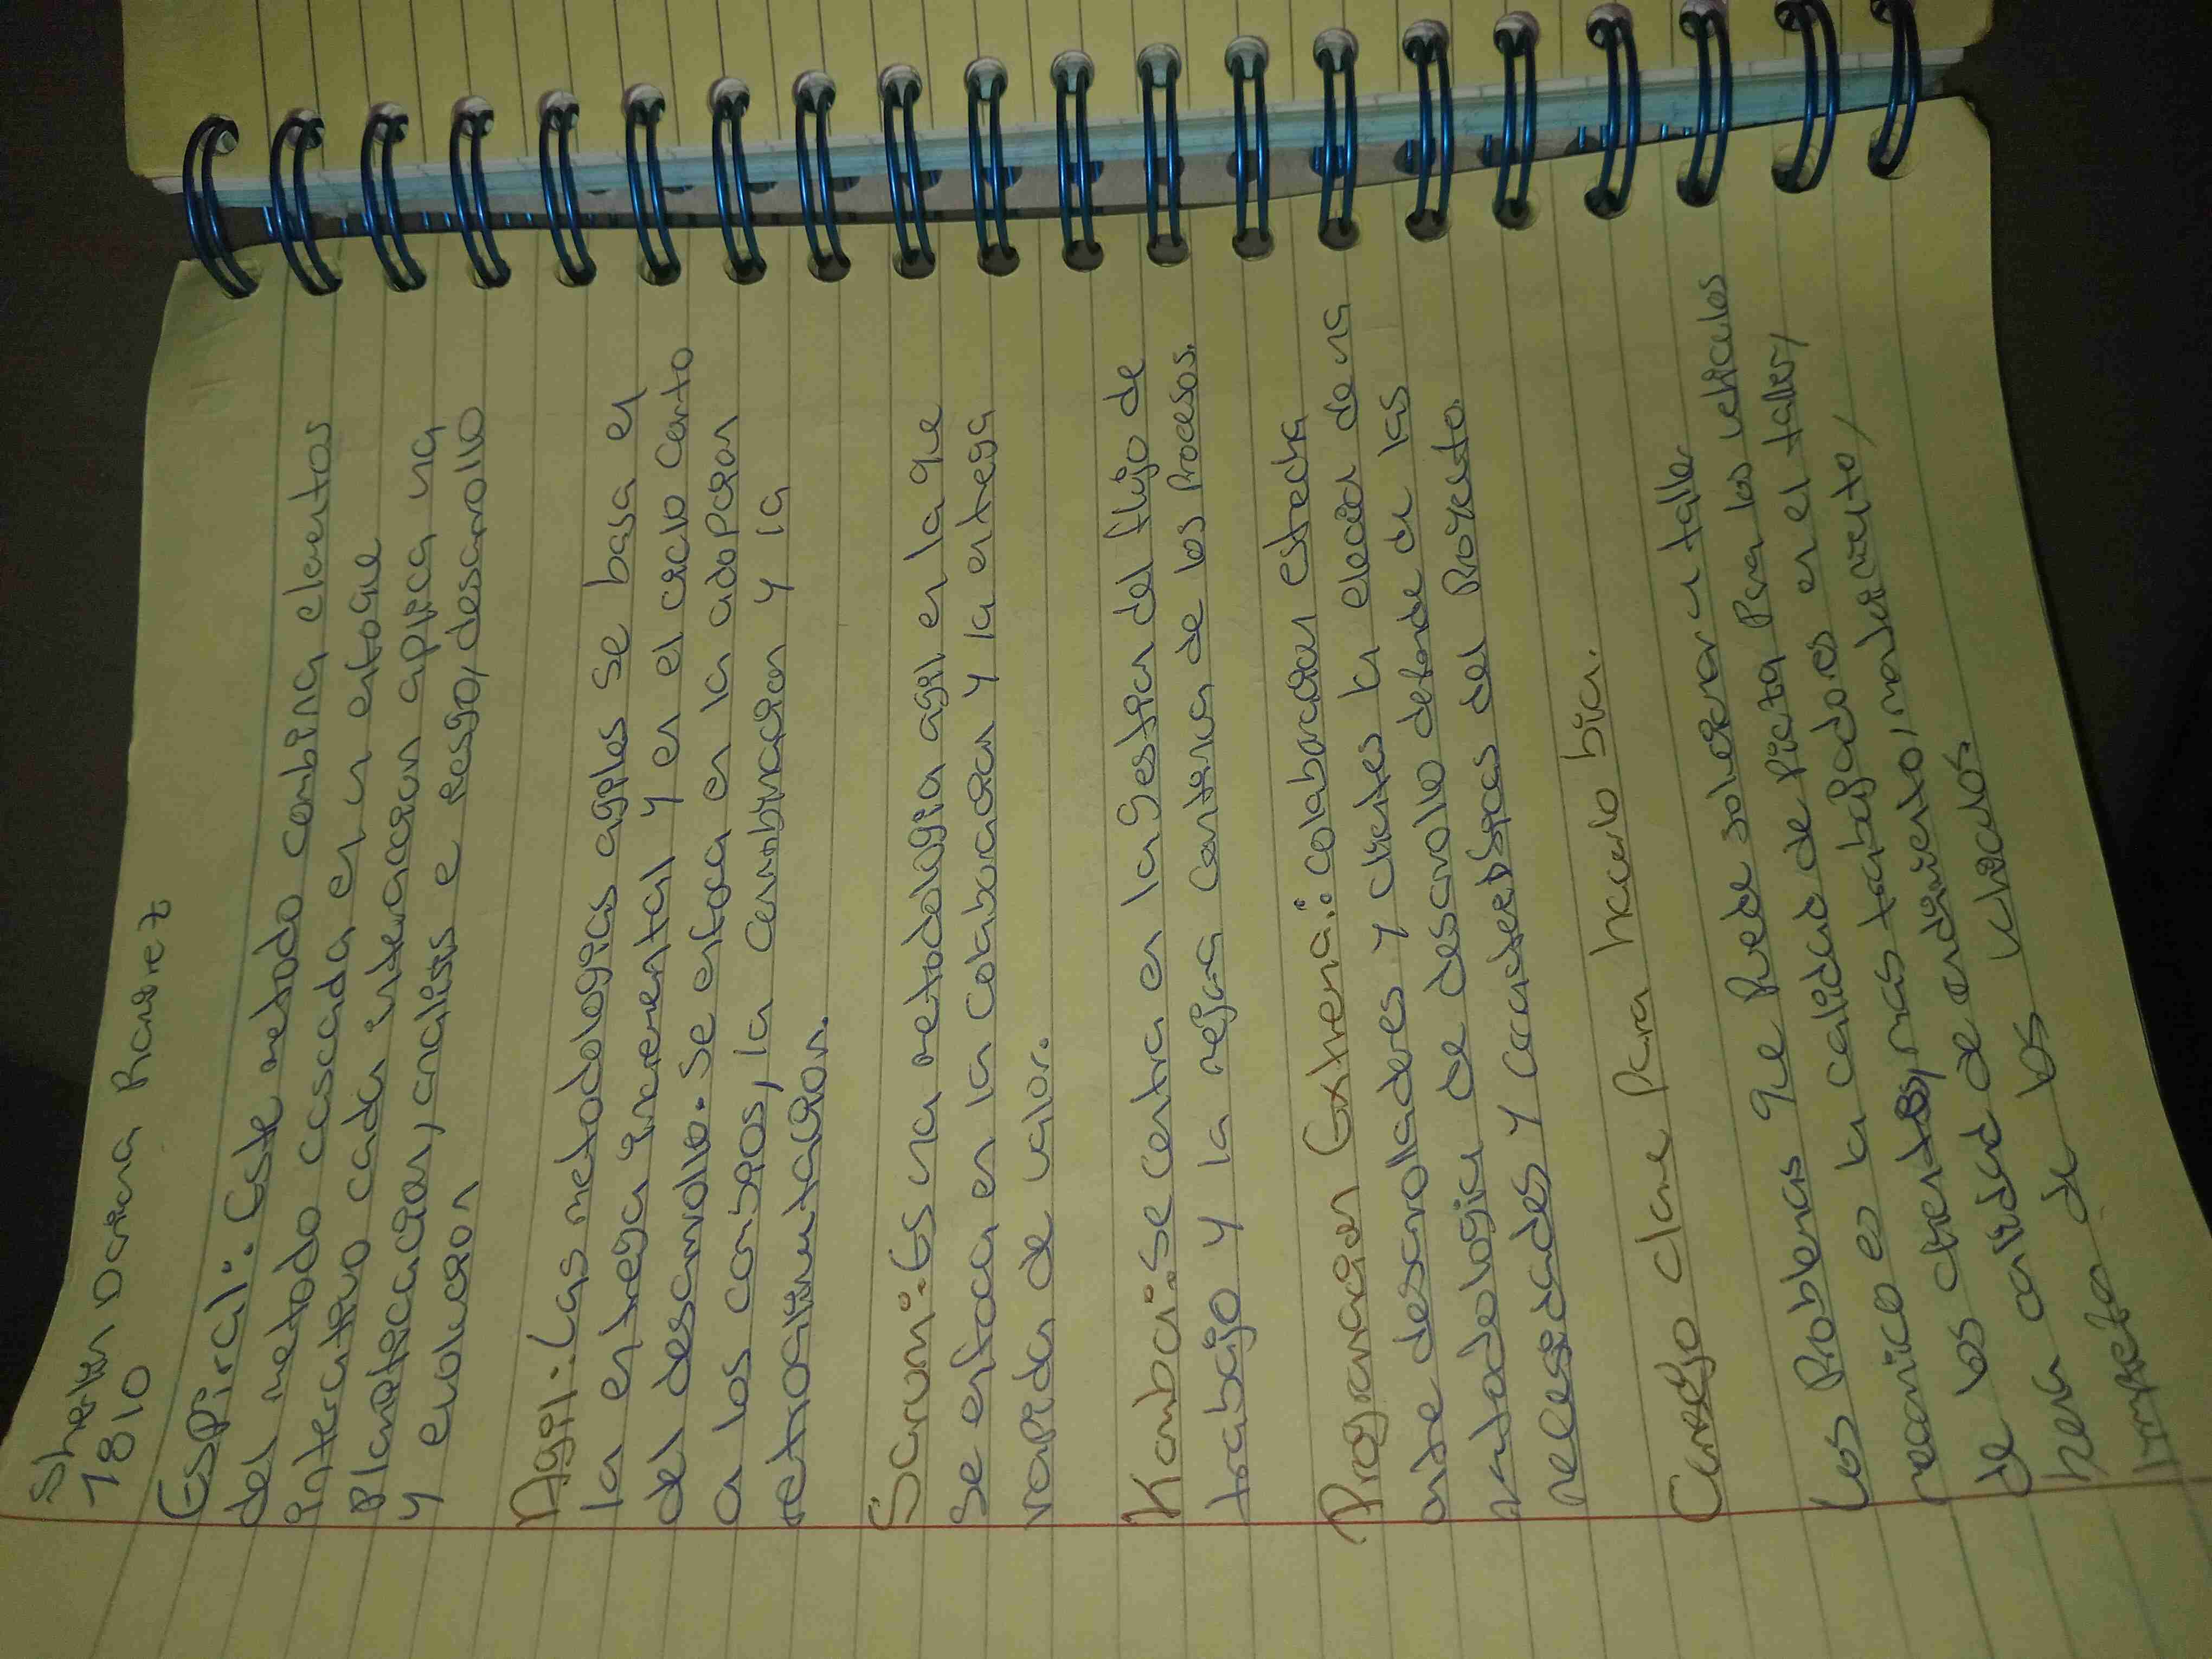 Sherlin Dariana Ramirez
1810
Espiral: Este metodo combina elementos
del metodo cascada en un enfoque
interactivo cada interaccion aplica una
planificacion, analisis e resgo, desarrollo
y evolucion
Agil: Las metodologias agiles se basa en
la entrega incremental y en el ciclo corto
del desarrollo. Se enfoca en la adopcion
a los combios, la combinacion y la
retroalimentacion.
Scrum: Es una metodologia agil en la que
se enfoca en la colaboracion y la entrega
rapida de valor.
Kanban: Se centra en la gestion del flujo de
trabajo y la mejora continua de los procesos.
Programacion Extrema: colaboracion estrecha
entre desarrolladores y clientes la eleccion de una
metodologia de desarrollo defende de las
necesidades y caracteristicas del proyecto.
Consejo clave para hacerlo bien.
Los problemas que puede solucionar un taller
mecanico es la calidad de pieza para los vehiculos
de los clientes, mas trabajadores en el taller,
buena calidad de rendimiento, mantenimiento,
limpieza de los vehiculos.